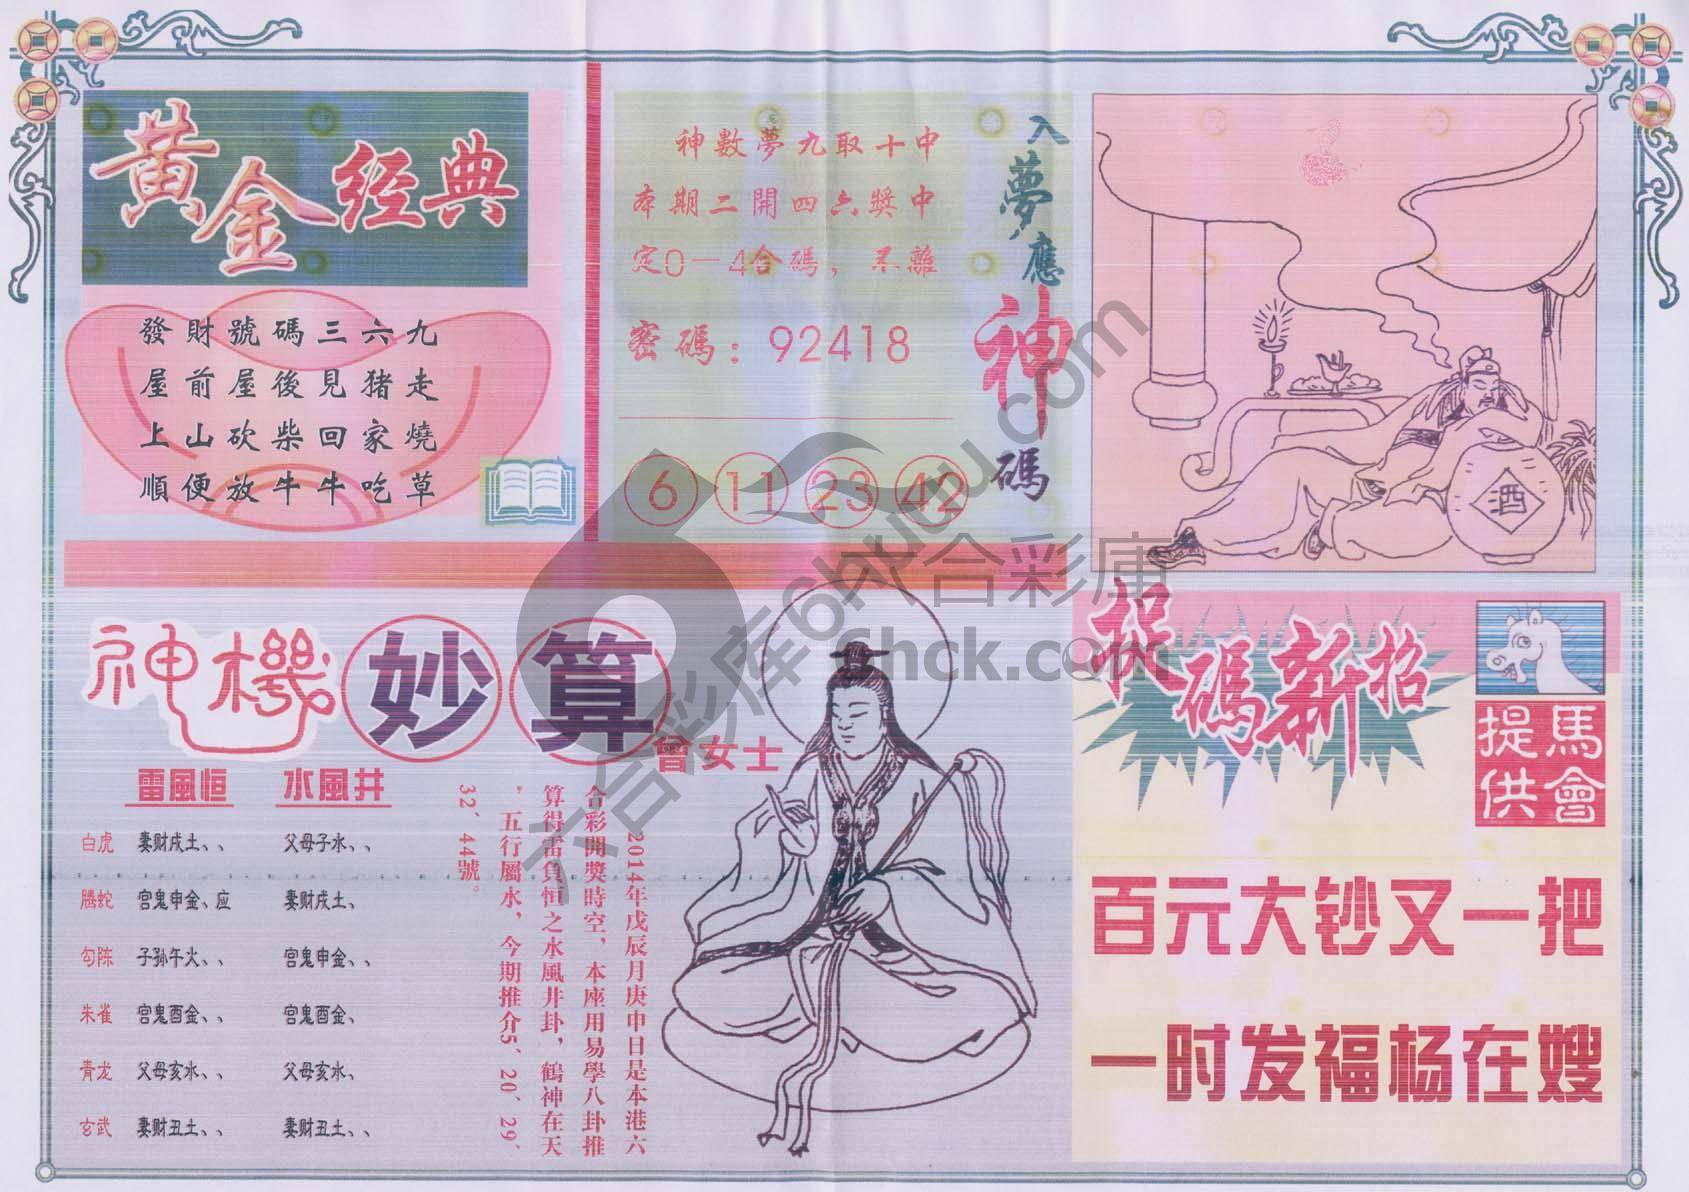 黄金经典
發財號碼三六九
屋前屋後見猪走
上山砍柴回家燒
順便放牛牛吃草
入夢應神碼
神數夢九取十中
本期二開四六獎中
定0－4合碼，不離
密碼：92418
6 11 23 42
酒
神機妙算
曾女士
雷風恒 水風井
白虎 妻财戌土、、 父母子水、、
腾蛇 官鬼申金、应 妻财戌土、
勾陈 子孙午火、、 官鬼申金、、
朱雀 官鬼酉金、、 官鬼酉金、
青龙 父母亥水、、 父母亥水、
玄武 妻财丑土、、 妻财丑土、、
2014年戊辰月庚申日是本港六
合彩開獎時空，本座用易學八卦推
算得雷負恒之水風井卦，鶴神在天
，五行屬水，今期推介5、20、29、
32、44號。
捉碼新招
馬會提供
百元大钞又一把
一时发福杨在嫂
六合彩库6huw.com
六合彩库
6hck.com